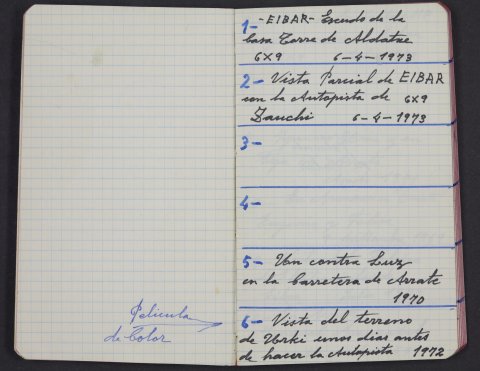 Pelicula
de Color
1- -EIBAR- Escudo de la
Casa Torre de Aldatze
6x9 6-4-1973
2- Vista Parcial de EIBAR
con la Autopista de 6x9
6-4-1973
3-
4-
5- Un contra Luz
en la Carretera de Arrate
1970
6- Vista del terreno
de Urki unos dias antes
de hacer la Autopista 1972